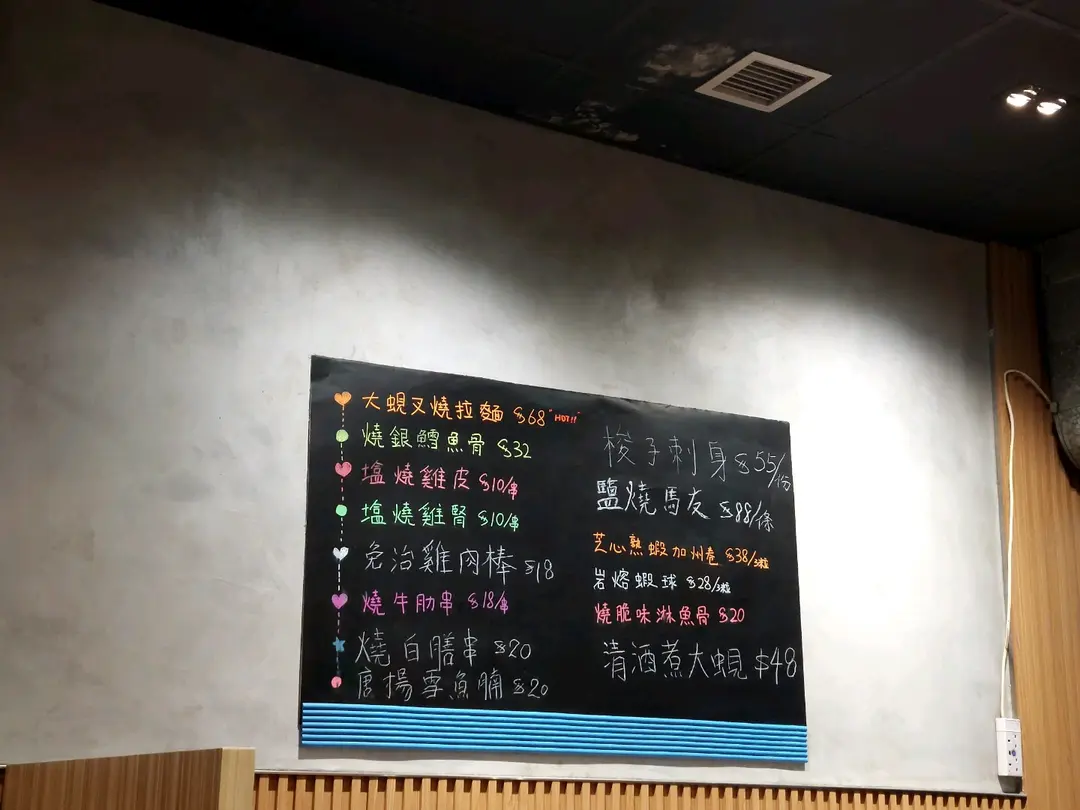 大蜆叉燒拉麵 $68 "HOT!!"
燒銀鱈魚骨 $32
塩燒雞皮 $10/串
塩燒雞腎 $10/串
免治雞肉棒 $18
燒牛肋串 $18/串
燒白膳串 $20
唐揚雪魚腩 $20
梭子刺身 $55/份
鹽燒馬友 $88/條
芝心熟蝦加州卷 $38/3粒
岩熔蝦球 $28/3粒
燒脆味淋魚骨 $20
清酒煮大蜆 $48